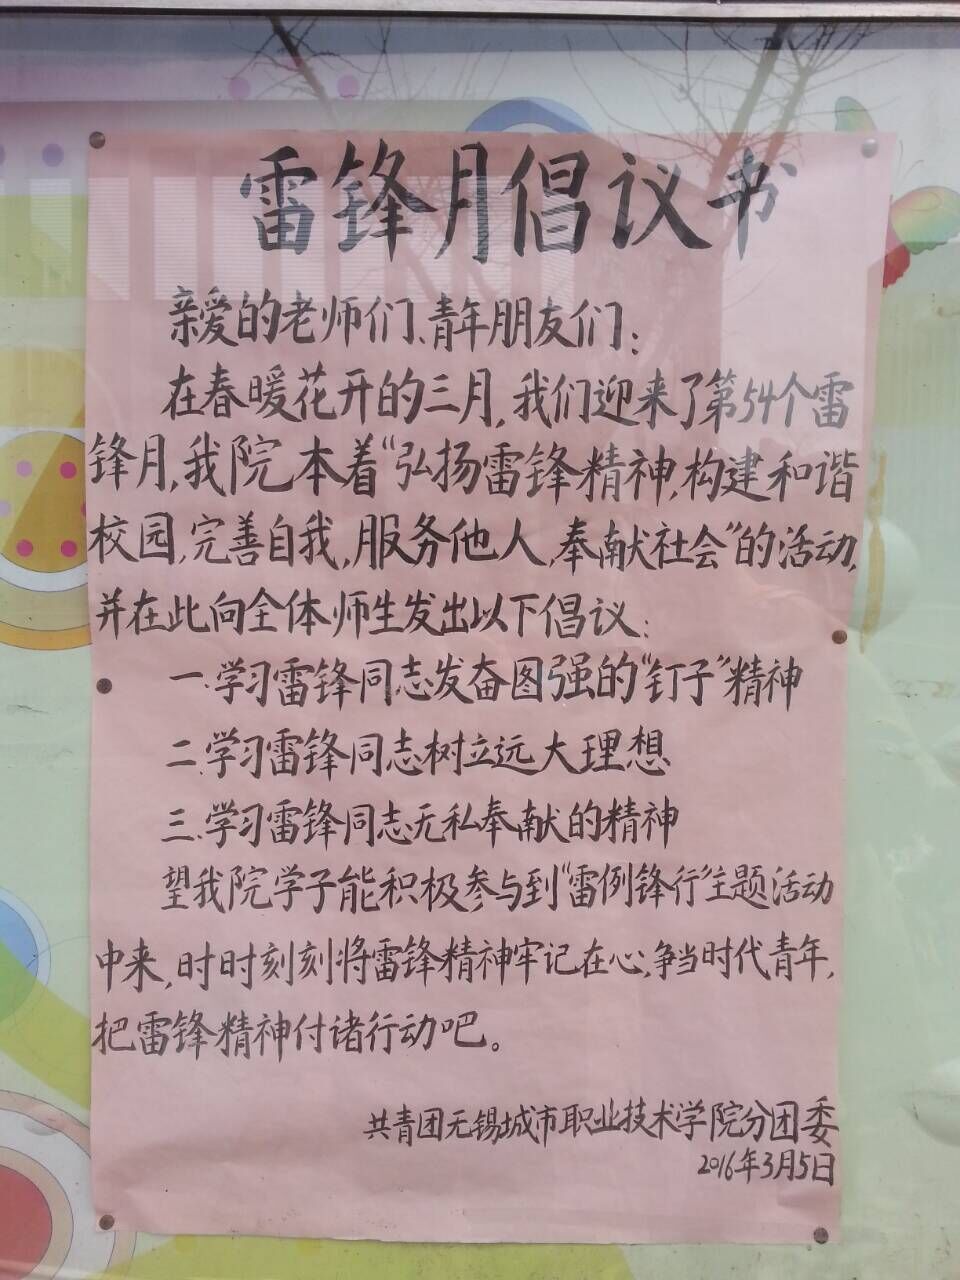 雷锋月倡议书
亲爱的老师们、青年朋友们：
在春暖花开的三月，我们迎来了第54个雷
锋月，我院本着“弘扬雷锋精神，构建和谐
校园，完善自我，服务他人，奉献社会”的活动，
并在此向全体师生发出以下倡议：
一、学习雷锋同志发奋图强的“钉子”精神
二、学习雷锋同志树立远大理想
三、学习雷锋同志无私奉献的精神
望我院学子能积极参与到“雷例锋行”主题活动
中来，时时刻刻将雷锋精神牢记在心，争当时代青年，
把雷锋精神付诸行动吧。
共青团无锡城市职业技术学院分团委
2016年3月5日